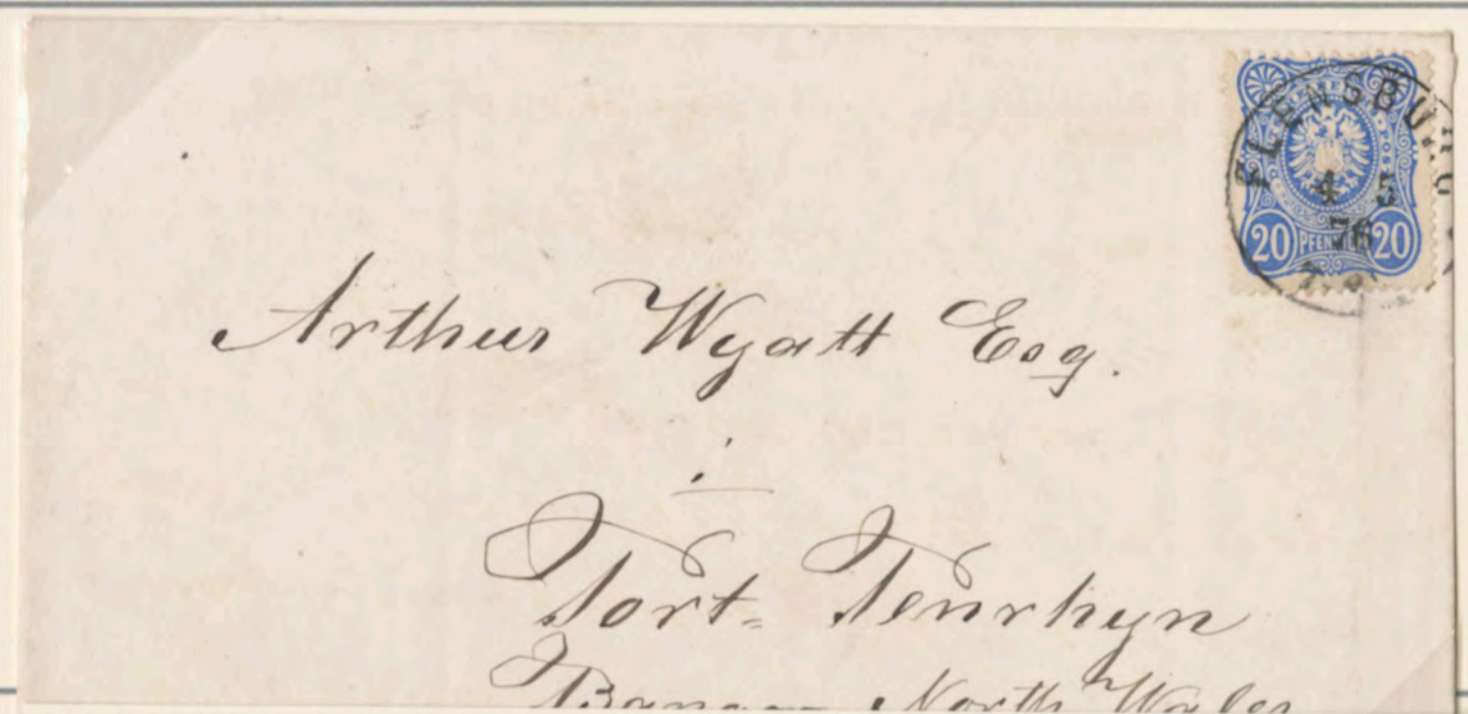 FLENSBURG
4 5
76
20 PFENNIG 20
Arthur Wyatt Esq.
Port- Penrhyn
Bangor North Wales